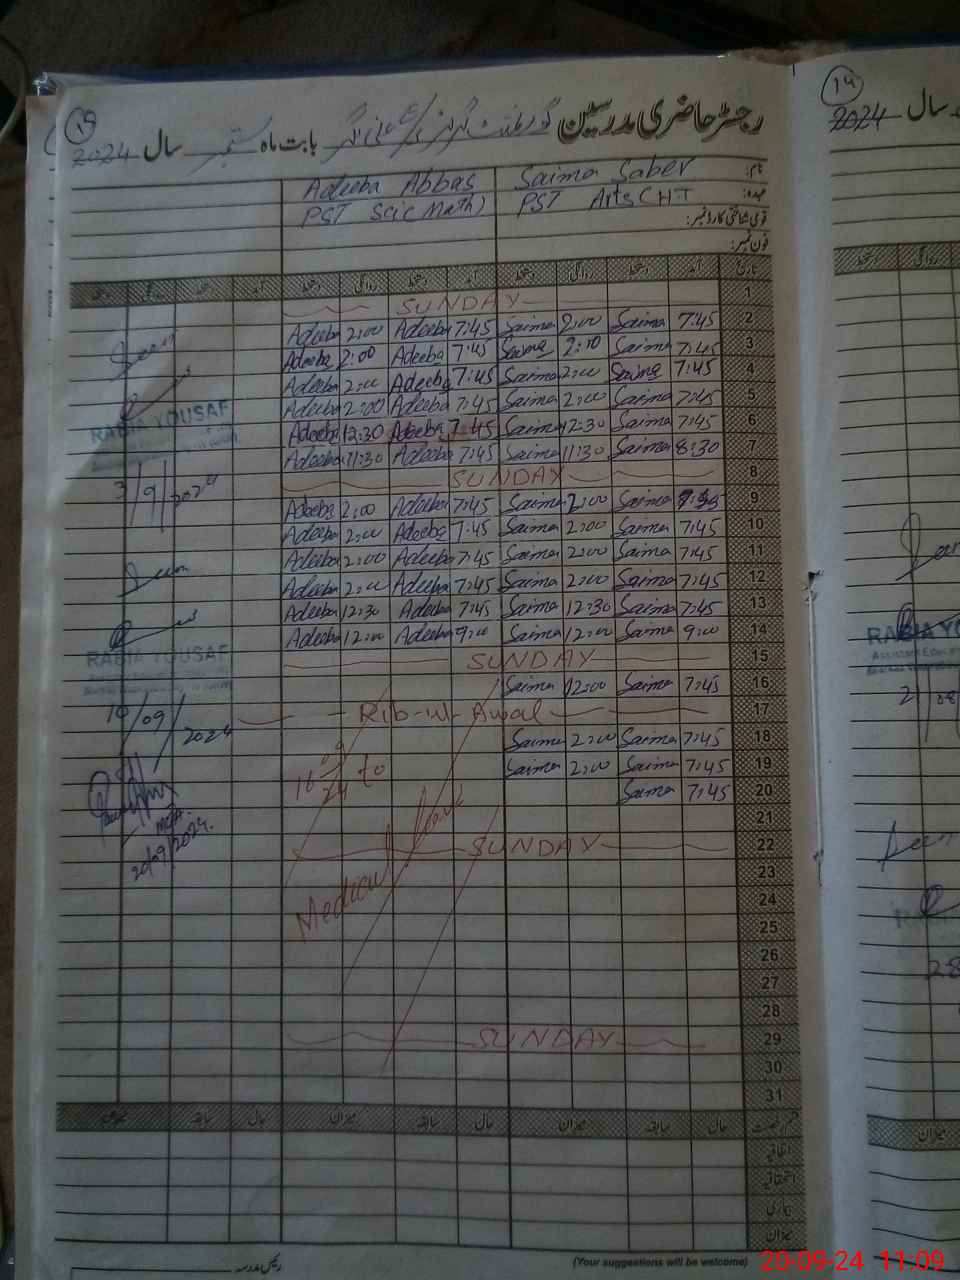 19
رجسٹر حاضری مدرسین گورنمنٹ گرلز
بابت ماہ ستمبر سال 2024
نام: Saima Saber Adeeba Abbas
عہدہ: PST Arts CHT PST Scic Math)
قومی شناختی کارڈ نمبر:
فون نمبر:
تاریخ آمد دستخط روانگی دستخط آمد دستخط روانگی دستخط آمد دستخط روانگی دستخط
SUNDAY 1
Adeeba 2:00 Adeeba 7:45 Saima 2:00 Saima 7:45 2
Adeeba 2:00 Adeeba 7:45 Saima 2:00 Saima 7:45 3
Adeeba 2:00 Adeeba 7:45 Saima 2:00 Saima 7:45 4
Adeeba 2:00 Adeeba 7:45 Saima 2:00 Saima 7:45 5
Adeeba 12:30 Adeeba 7:45 Saima 12:30 Saima 7:45 6
Adeeba 11:30 Adeeba 7:45 Saima 11:30 Saima 8:30 7
SUNDAY 8
Adeeba 2:00 Adeeba 7:45 Saima 2:00 Saima 9
Adeeba 2:00 Adeeba 7:45 Saima 2:00 Saima 7:45 10
Adeeba 2:00 Adeeba 7:45 Saima 2:00 Saima 7:45 11
Adeeba 2:00 Adeeba 7:45 Saima 2:00 Saima 7:45 12
Adeeba 12:30 Adeeba 7:45 Saima 12:30 Saima 7:45 13
Adeeba 12:00 Adeeba 9:00 Saima 12:00 Saima 9:00 14
SUNDAY 15
Saima 12:00 Saima 7:45 16
Rib-ul-Awal 17
Saima 2:00 Saima 7:45 18
Saima 2:00 Saima 7:45 19
Saima 7:45 20
21
SUNDAY 22
23
24
25
26
27
28
SUNDAY 29
30
31
Medical leave
Seen
RABIA YOUSAF
3/9/2024
Seen
RABIA YOUSAF
10/09/2024
MEA
20/09/2024.
حال سابقہ میزان حال سابقہ میزان حال سابقہ میزان
اتفاقیہ
استحقاقیہ
بیماری
میزان
رئیس مدرسہ
(Your suggestions will be welcome)
14
سال 2024
دستخط روانگی
Seen
RABIA YO
Seen
28
میزان
20-09-24 11:09